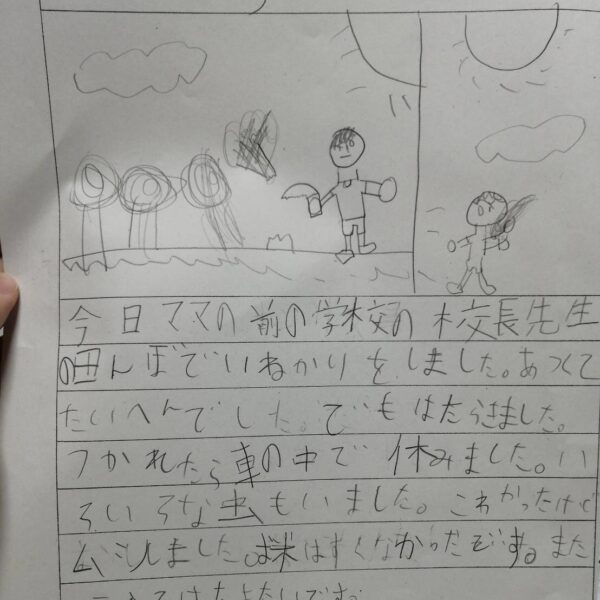 今日ママの前の学校の校長先生
の田んぼでいねかりをしました。あつくて
たいへんでした。でもはたらきました。
つかれたら車の中で休みました。い
ろいろな虫もいました。これかったけど
ムシしました。米はすくなかったぞです。また